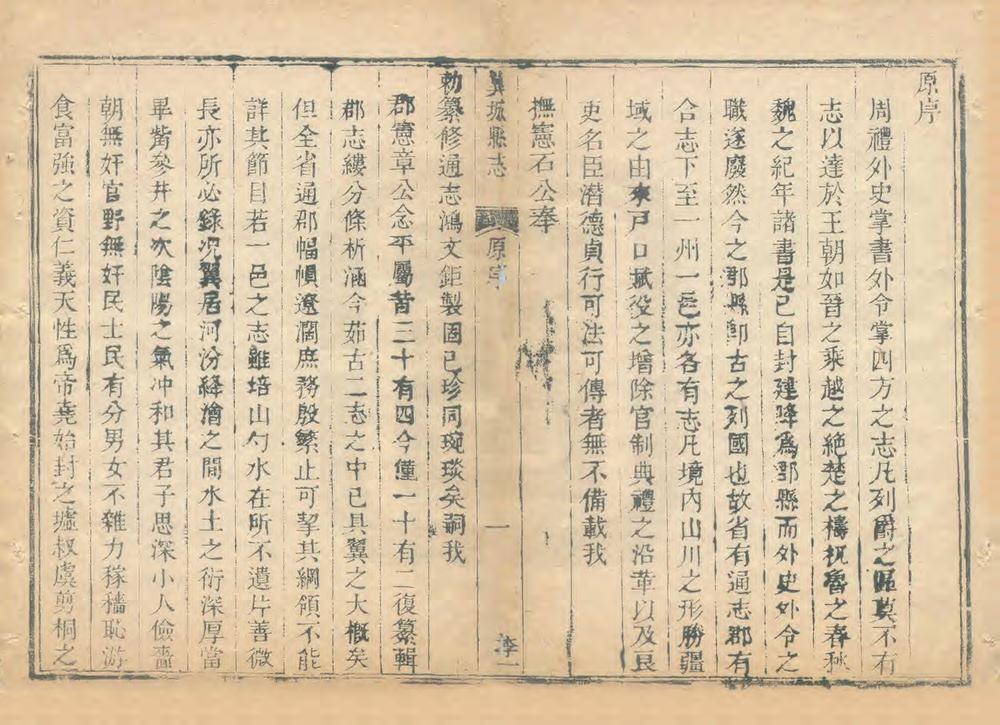 原序
周禮外史掌書外令掌四方之志凡列爵之區莫不有
志以達於王朝如晉之乘越之絶楚之檮杌魯之春秋
魏之紀年諸書是已自封建降爲郡縣而外史外令之
職遂廢然今之郡縣卽古之列國也故省有通志郡有
合志下至一州一邑亦各有志凡境內山川之形勝疆
域之由來戸口賦役之增除官制典禮之沿革以及良
吏名臣潛德貞行可法可傳者無不備載我
撫憲石公奉
翼城縣志 原序 一
勅纂修通志鴻文鉅製固已珍同琬琰矣嗣我
郡憲章公念平屬昔三十有四今僅一十有二復纂輯
郡志縷分條析涵今茹古二志之中已具翼之大槪矣
但全省通郡幅幀遼濶庶務殷繁止可挈其綱領不能
詳其節目若一邑之志雖培山勺水在所不遺片善微
長亦所必錄况翼居河汾絳澮之間水土之衍深厚當
畢觜參井之次陰陽之氣冲和其君子思深小人儉嗇
朝無奸官野無奸民士民有分男女不雜力稼穡恥游
食富強之資仁義天性爲帝堯始封之墟叔虞剪桐之